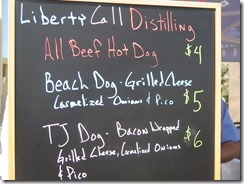 Liberty Call Distilling
All Beef Hot Dog $4
Beach Dog - Grilled Cheese
Carmelized Onions & Pico $5
TJ Dog - Bacon Wrapped
Grilled Cheese, Carmelized Onions $6
& Pico